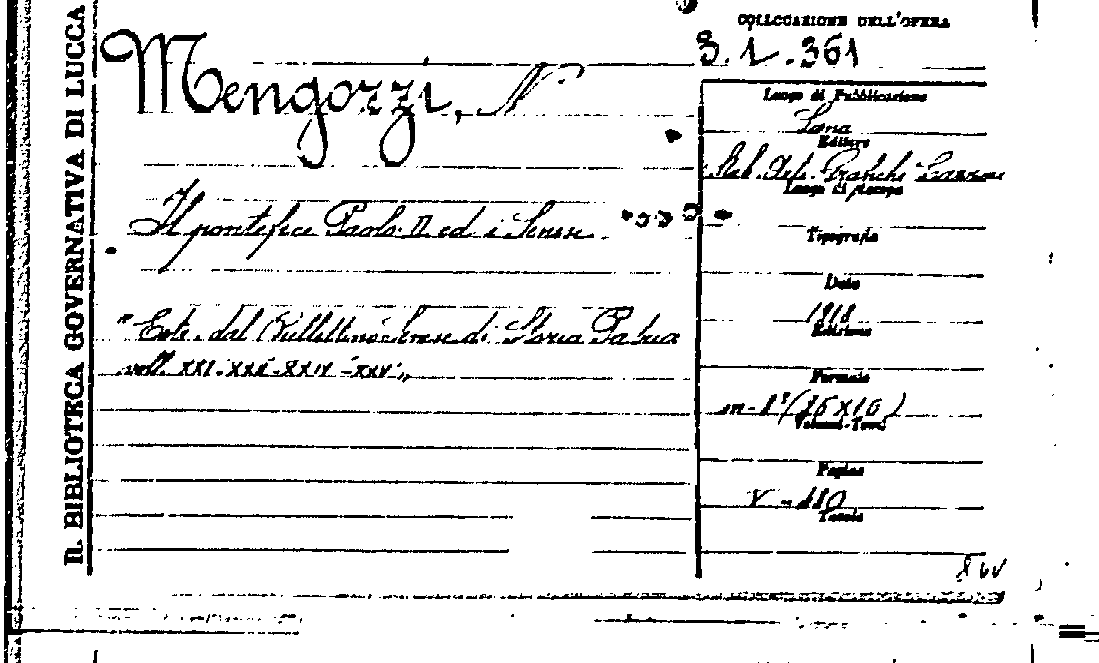 R. BIBLIOTECA GOVERNATIVA DI LUCCA
COLLOCAZIONE DELL'OPERA
3.1.361
Mengozzi, N.
Il pontefice Paolo II ed i Senesi
"Estr. dal Bullettino Senese di Storia Patria
voll. XXI-XXII-XXIV-XXV"
Luogo di Pubblicazione
Siena
Editore
Stab. Arti Grafiche Lazzeri
Luogo di stampa
Tipografia
Data
1918
Edizione
Formato
in-8° (25x16)
Volumi-Tomi
Pagine
V-110
Tavole